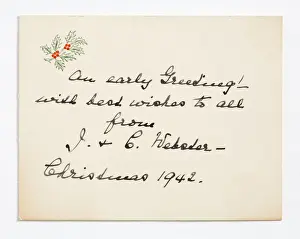 An early Greeting!-
with best wishes to all
from
J. & C. Webster -
Christmas 1942.